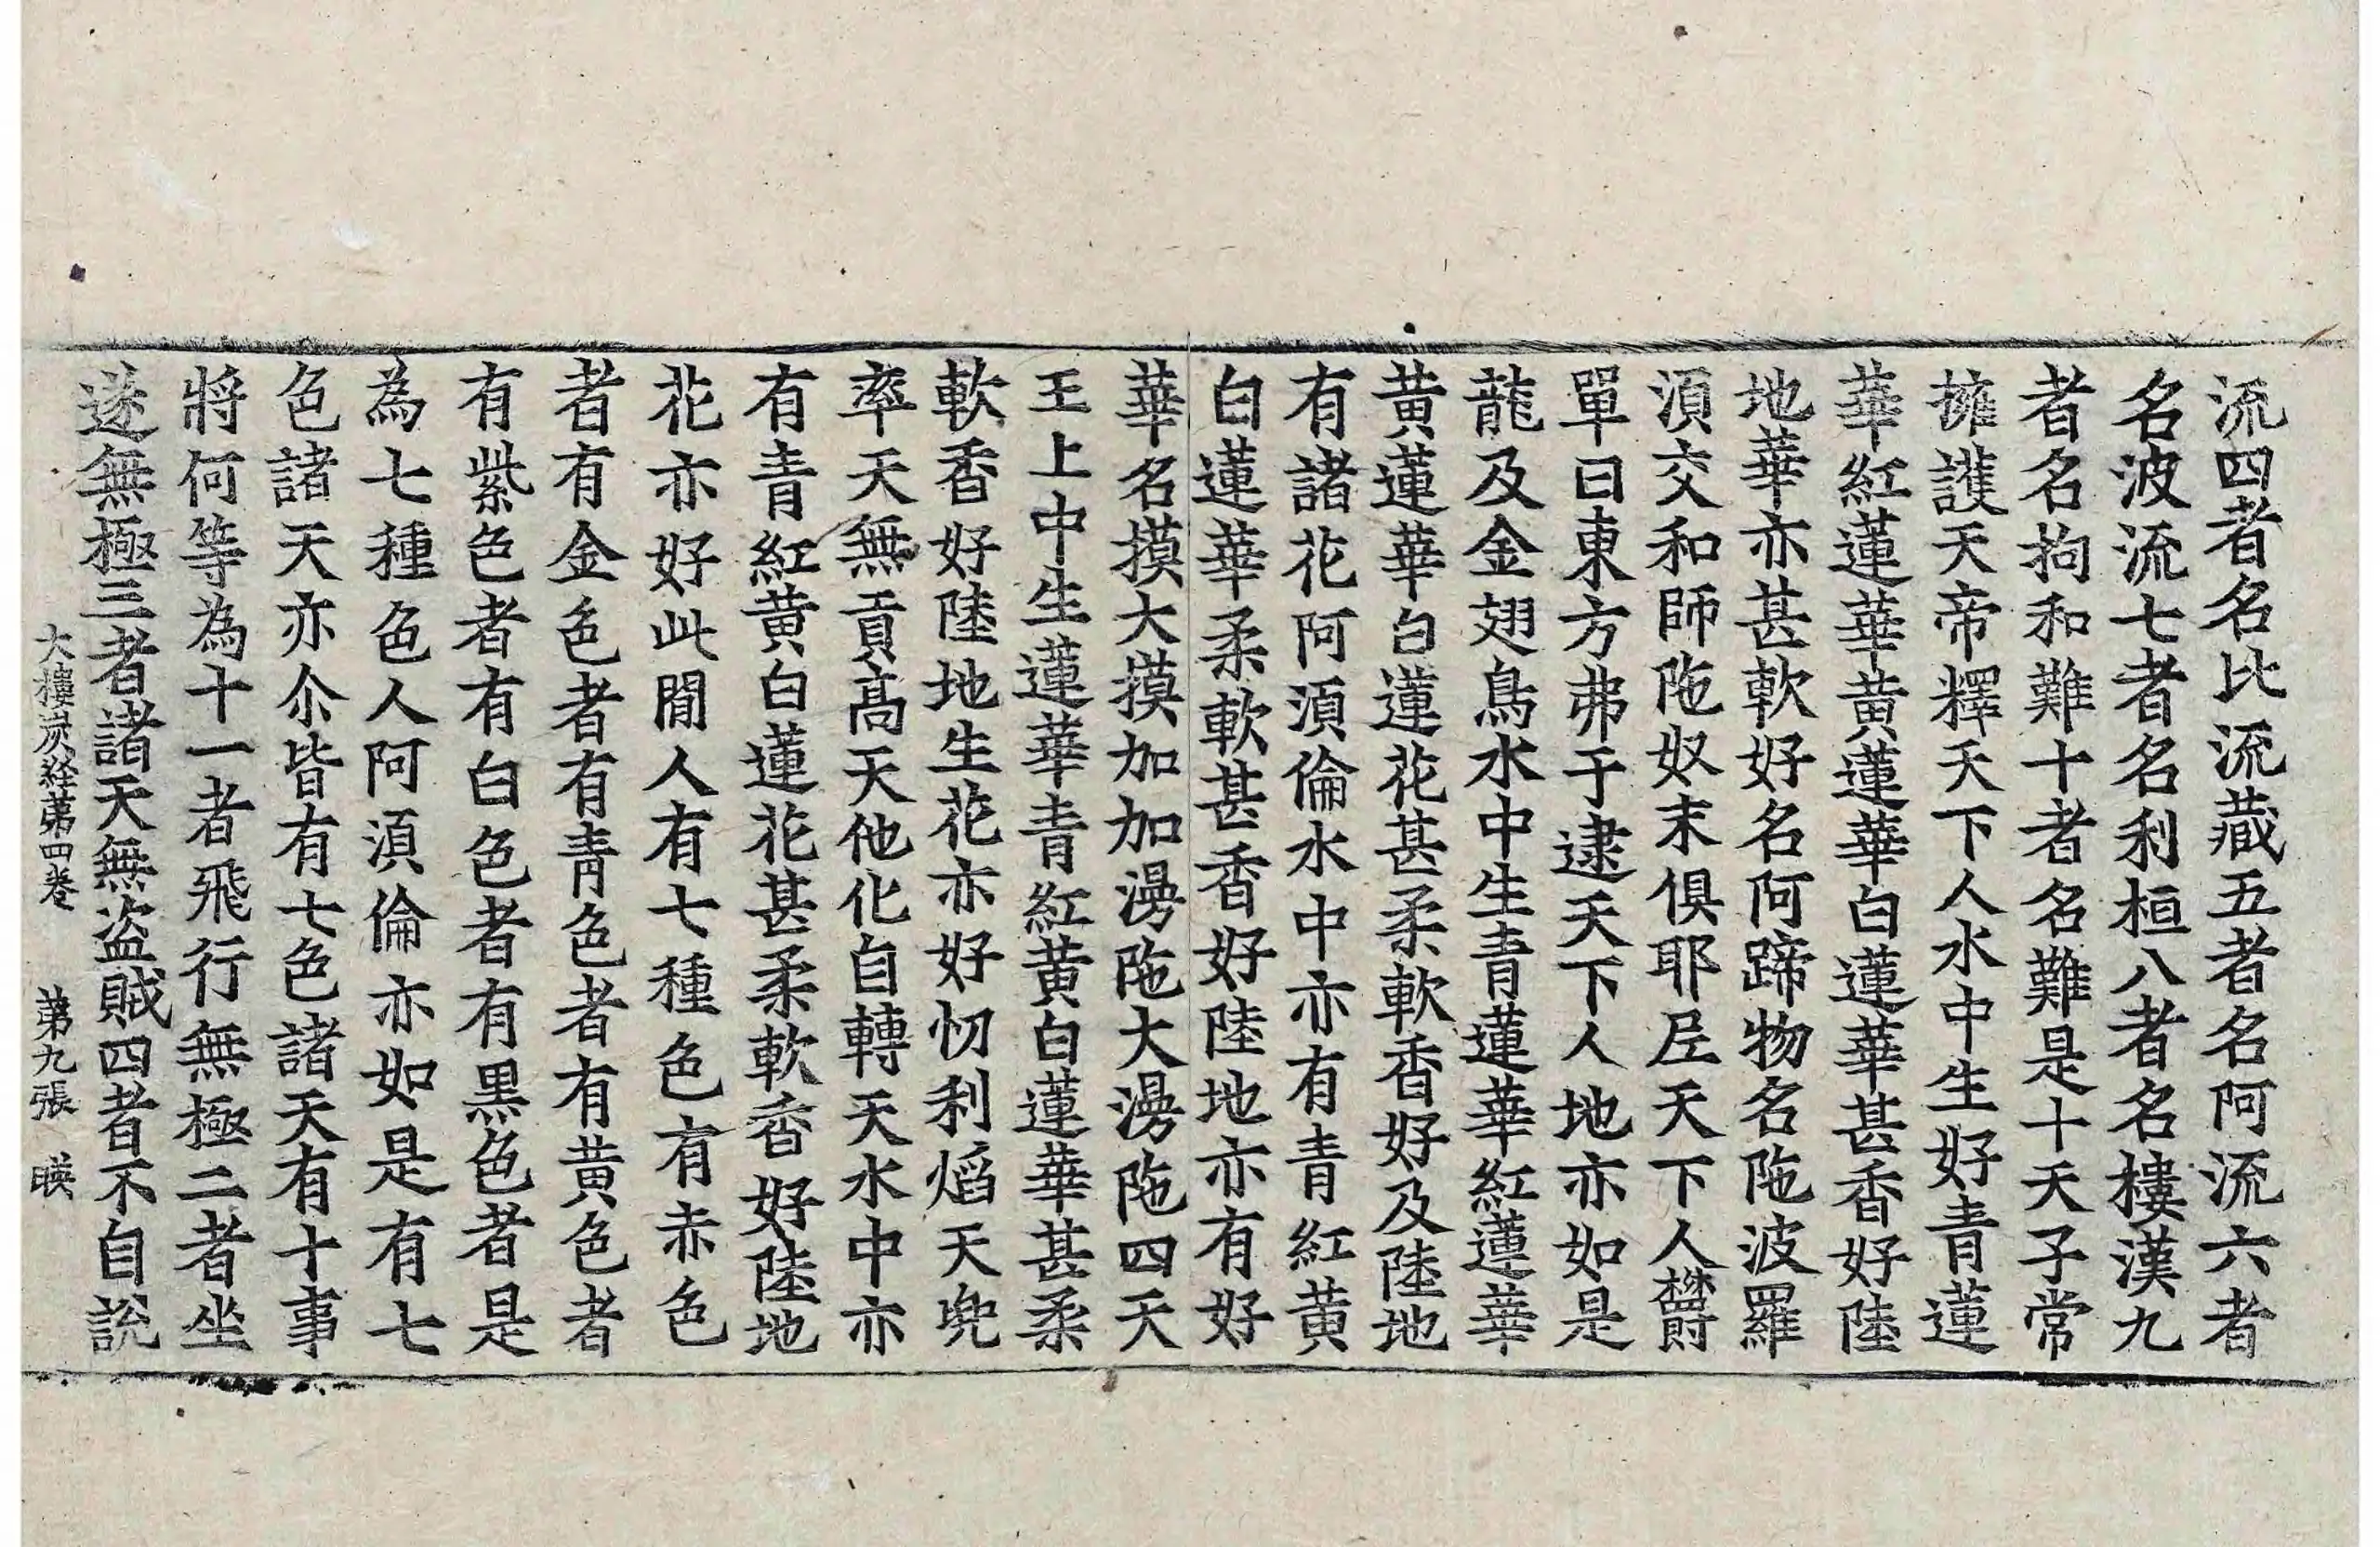 流四者名比流藏五者名阿流六者
名波流七者名利桓八者名樓漢九
者名拘和難十者名難是十天子常
擁護天帝釋天下人水中生好青蓮
華紅蓮華黃蓮華白蓮華甚香好陸
地華亦甚軟好名阿蹄物名陁波羅
湏交和師陁奴末俱耶𡰱天下人欝
單曰東方弗于逮天下人地亦如是
龍及金翅鳥水中生青蓮華紅蓮華
黃蓮華白蓮花甚柔軟香好及陸地
有諸花阿湏倫水中亦有青紅黃
白蓮華柔軟甚香好陸地亦有好
華名摸大摸加加漫陁大漫陁四天
王上中生蓮華青紅黃白蓮華甚柔
軟香好陸地生花亦好忉利焰天兠
率天無貢高天他化自轉天水中亦
有青紅黃白蓮花甚柔軟香好陸地
花亦好此閒人有七種色有赤色
者有金色者有青色者有黃色者
有紫色者有白色者有黑色者是
為七種色人阿湏倫亦如是有七
色諸天亦尒皆有七色諸天有十事
將何等為十一者飛行無極二者坐
遂無極三者諸天無盜賊四者不自説
大樓炭経苐四卷　苐九張　暎